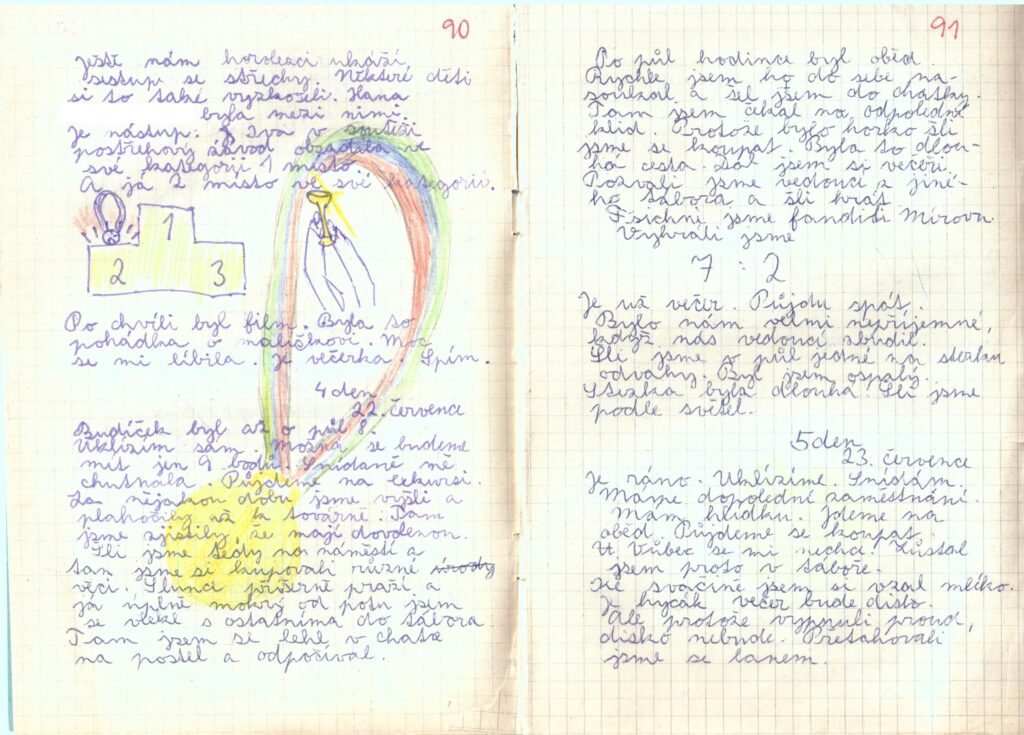 90
ještě nám horolezci ukáží
sestup se střechy. Některé děti
si to také vyzkoušeli. Hana
byla mezi nimi.
Je nástup. Iva v soutěži
postřehový závod obsadila ve
své kategorii 1 místo.
A já 2 místo ve své kategorii.
1
2 3
Po chvíli byl film. Byla to
pohádka o maličkovi. Moc
se mi líbila. Je večerka Spím.
4 den
22. července
Budíček byl až o půl 8.
Uklízím sám. Možná se budeme
mít jen 9 bodů. Snídaně mě
chutnala. Půjdeme na exkursi.
Za nějakou dobu jsme vyšli a
plahočily až k továrně. Tam
jsme zjistily, že mají dovolenou.
Šli jsme tedy na náměstí a
tam jsme si kupovali různé
věci. Slunci příšerně praží a
já úplně mokrý od potu jsem
se vleke s ostatníma do tábora
Tam jsem si lehl v chatě
na postel a odpočíval.
91
Po půl hodince byl oběd.
Rychle jsem ho do sebe na-
soukal a šel jsem do chatky.
Tam jsem čekal na odpolední
klid. Protože bylo horko šli
jsme se koupat. Byla to dlou-
há cesta. Dal jsem si večeři.
Pozvali jsme vedoucí z jiné-
ho tábora a šli hrát
Všichni jsme fandili Mírovu
Vyhráli jsme
7 : 2
Je už večer. Půjdu spát.
Bylo nám velmi nepříjemné,
když nás vedoucí zbudil.
Šli jsme o půl jedné na stezku
odvahy. Byl jsem ospalý.
Stezka byla dlouhá. Šli jsme
podle světel.
5 den
23. července
Je ráno. Uklízíme. Snídám.
Máme dopolední zaměstnání.
Mám hlídku. Jdeme na
oběd. Půjdeme se koupat.
Vůbec se mi nechce. Zůstal
jsem proto v táboře.
Ke svačině jsem si vzal mléko.
Je hycák večer bude disko.
Ale protože vypnuli proud,
disko nebude. Přetahovali
jsme se lanem.